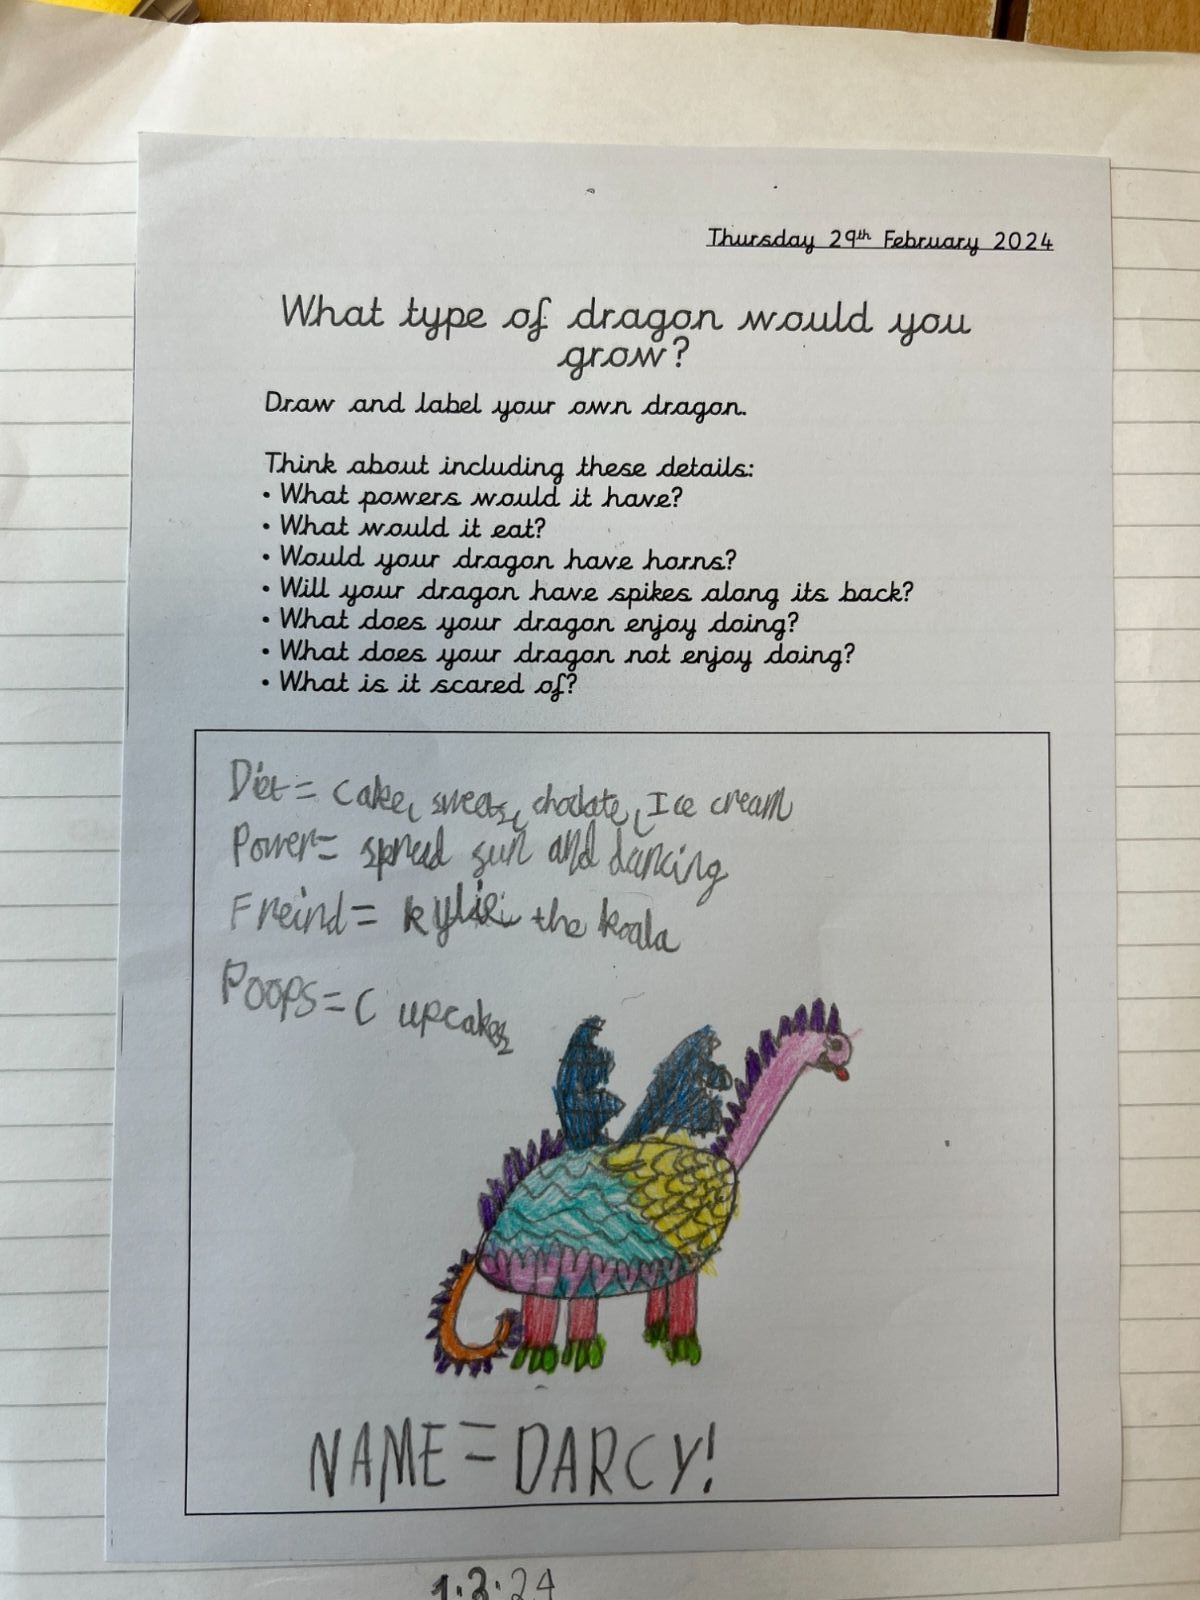 Thursday 29th February 2024
What type of dragon would you
grow?
Draw and label your own dragon.
Think about including these details:
• What powers would it have?
• What would it eat?
• Would your dragon have horns?
• Will your dragon have spikes along its back?
• What does your dragon enjoy doing?
• What does your dragon not enjoy doing?
• What is it scared of?
Diet = cake, sweets, choclate, Ice cream
Power = spread sun and dancing
Freind = kylie the koala
Poops = Cupcakes
NAME = DARCY!
1.3.24